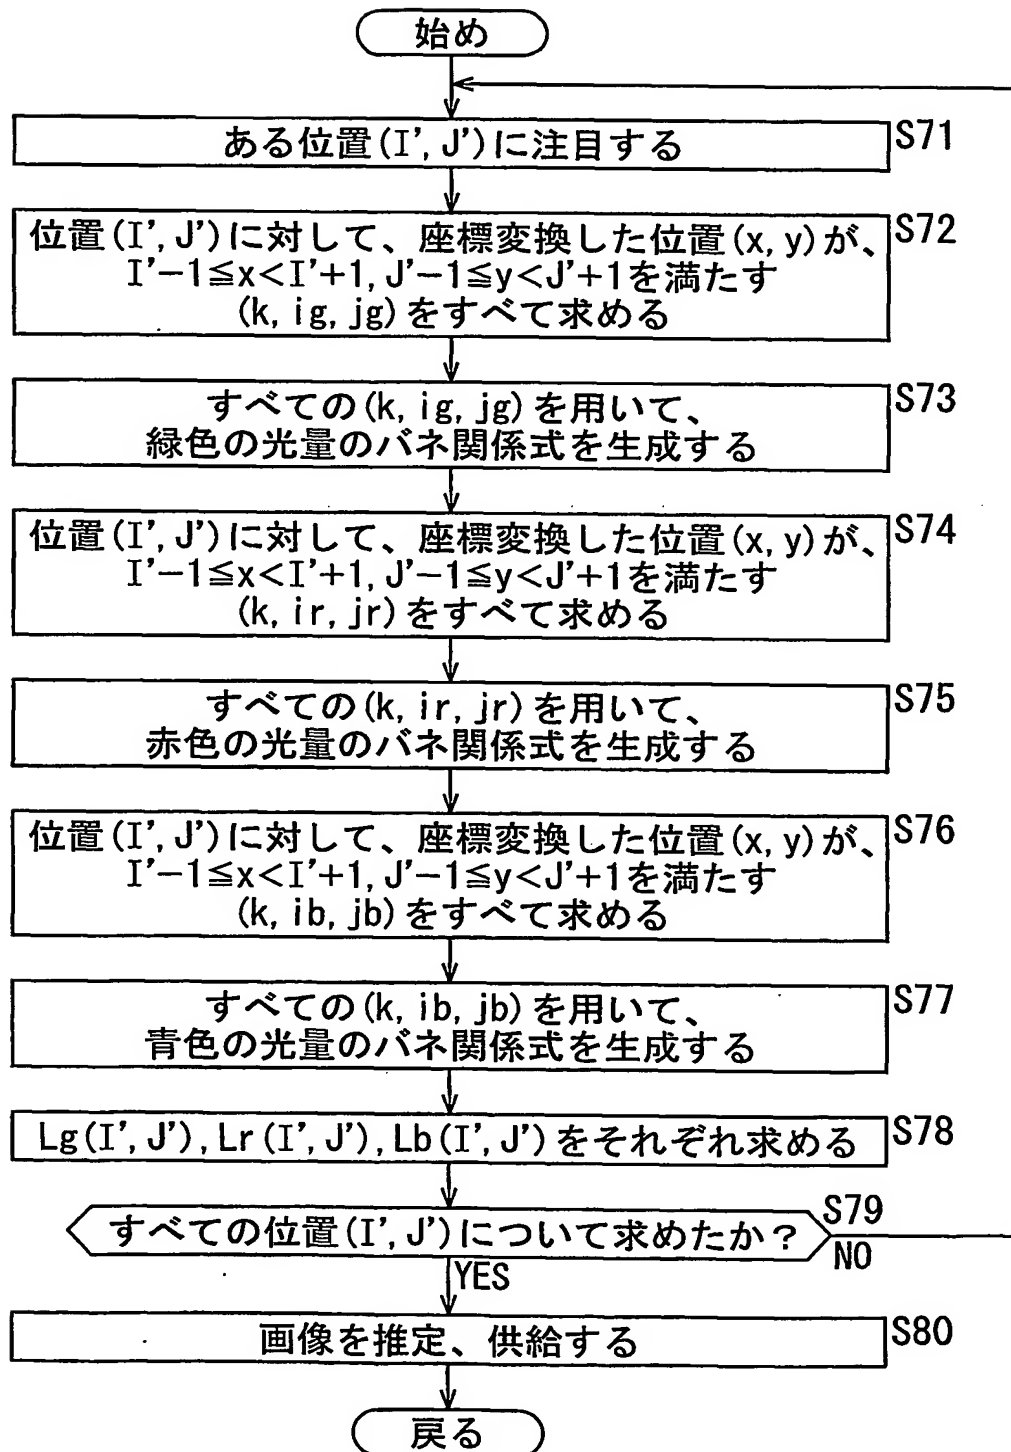 始め
ある位置(I', J')に注目する
S71
位置(I', J')に対して、座標変換した位置(x, y)が、
I'−1≦x<I'+1, J'−1≦y<J'+1を満たす
(k, ig, jg)をすべて求める
S72
すべての(k, ig, jg)を用いて、
緑色の光量のバネ関係式を生成する
S73
位置(I', J')に対して、座標変換した位置(x, y)が、
I'−1≦x<I'+1, J'−1≦y<J'+1を満たす
(k, ir, jr)をすべて求める
S74
すべての(k, ir, jr)を用いて、
赤色の光量のバネ関係式を生成する
S75
位置(I', J')に対して、座標変換した位置(x, y)が、
I'−1≦x<I'+1, J'−1≦y<J'+1を満たす
(k, ib, jb)をすべて求める
S76
すべての(k, ib, jb)を用いて、
青色の光量のバネ関係式を生成する
S77
Lg(I', J'), Lr(I', J'), Lb(I', J')をそれぞれ求める
S78
すべての位置(I', J')について求めたか？
S79
NO
YES
画像を推定、供給する
S80
戻る